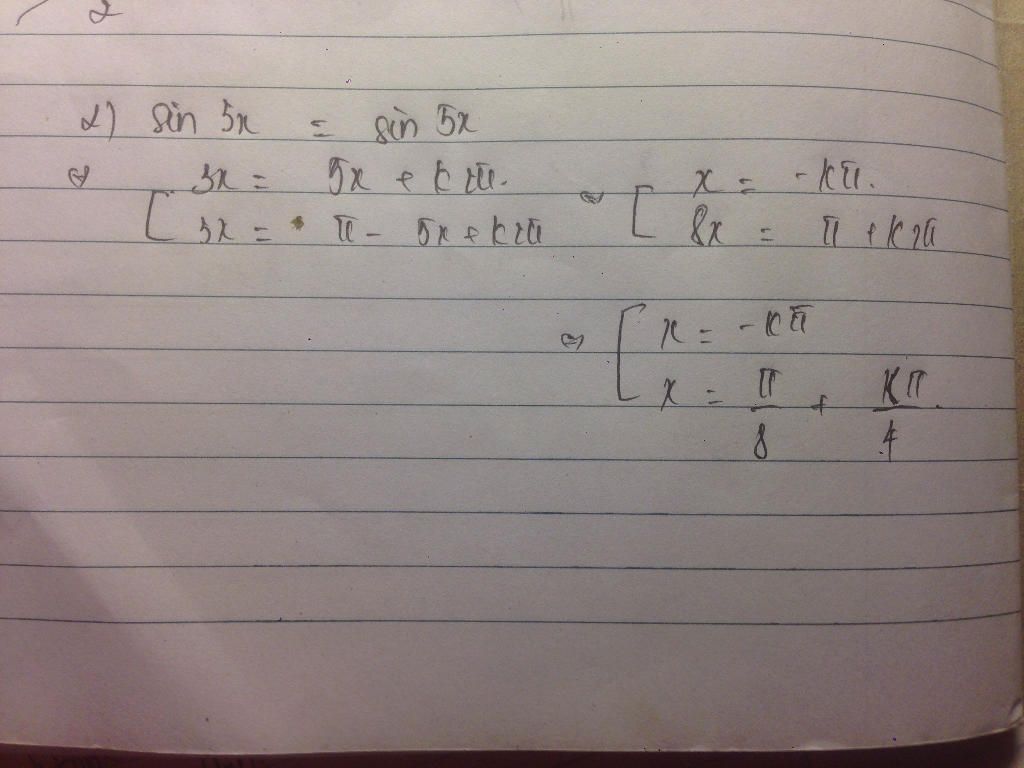 2
2) sin 5x = sin 5x
⇔ [ 3x = 5x + k2π. ⇔ [ x = -kπ.
3x = π - 5x + k2π 8x = π + k2π
⇔ [ x = -kπ
x = π/8 + kπ/4.